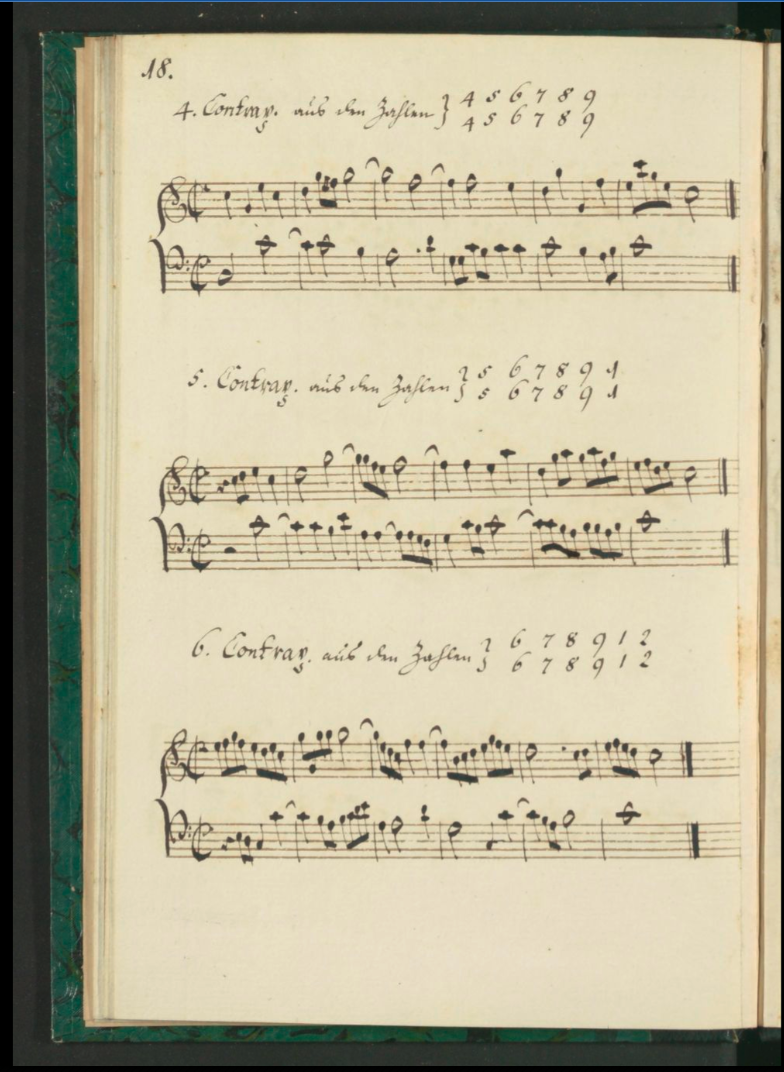 18.
4. Contrap. aus den Zahlen } 4 5 6 7 8 9
4 5 6 7 8 9
5. Contrap. aus den Zahlen } 5 6 7 8 9 1
5 6 7 8 9 1
6. Contrap. aus den Zahlen } 6 7 8 9 1 2
6 7 8 9 1 2